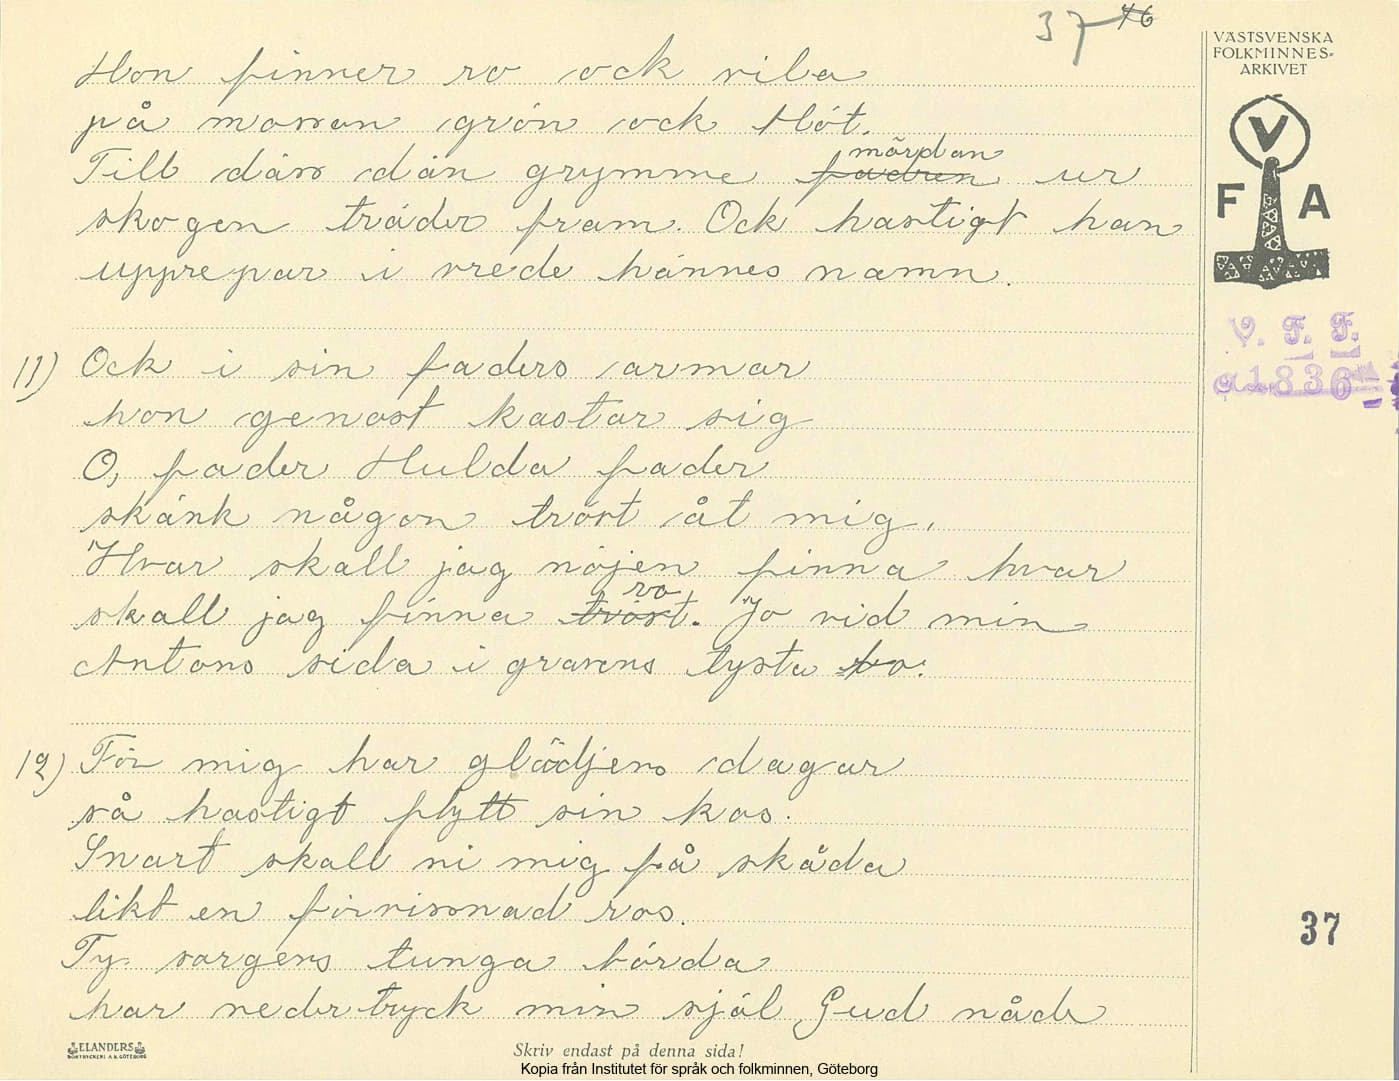 37 46
VÄSTSVENSKA
FOLKMINNES-
ARKIVET
V
F A
V. F. F.
1836
Hon finner ro ock vila
på mossan grön ock blöt.
Till däss dän grymme fadren mördan ur
skogen träder fram. Ock hastigt han
upprepar i vrede hännes namn.
11) Ock i sin faders armar
hon genast kastar sig
O, fader Hulda fader
skänk någon tröst åt mig.
Hvar skall jag nöjen finna hvar
skall jag finna tröst ro. Jo vid min
Antons sida i gravens tysta bo.
12) För mig har glädjens dagar
så hastigt flytt sin kos.
Snart skall ni mig få skåda
likt en förvissnad ros.
Ty sorgens tunga börda
har nedertryck min själ Gud nåde
37
ELANDERS
BOKTRYCKERI A.B. GÖTEBORG
Skriv endast på denna sida!
Kopia från Institutet för språk och folkminnen, Göteborg